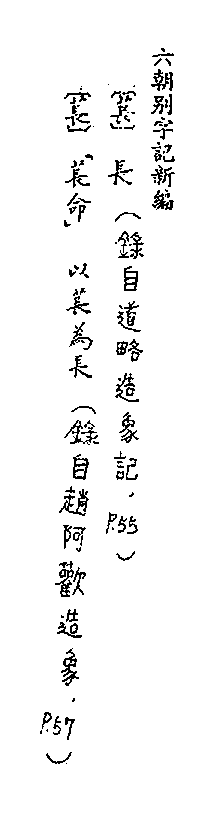 六朝别字記新編
〔萇〕長（錄自道略造象記，P.55）
〔萇〕「萇命」以萇為長（錄自趙阿歡造象，P.57）